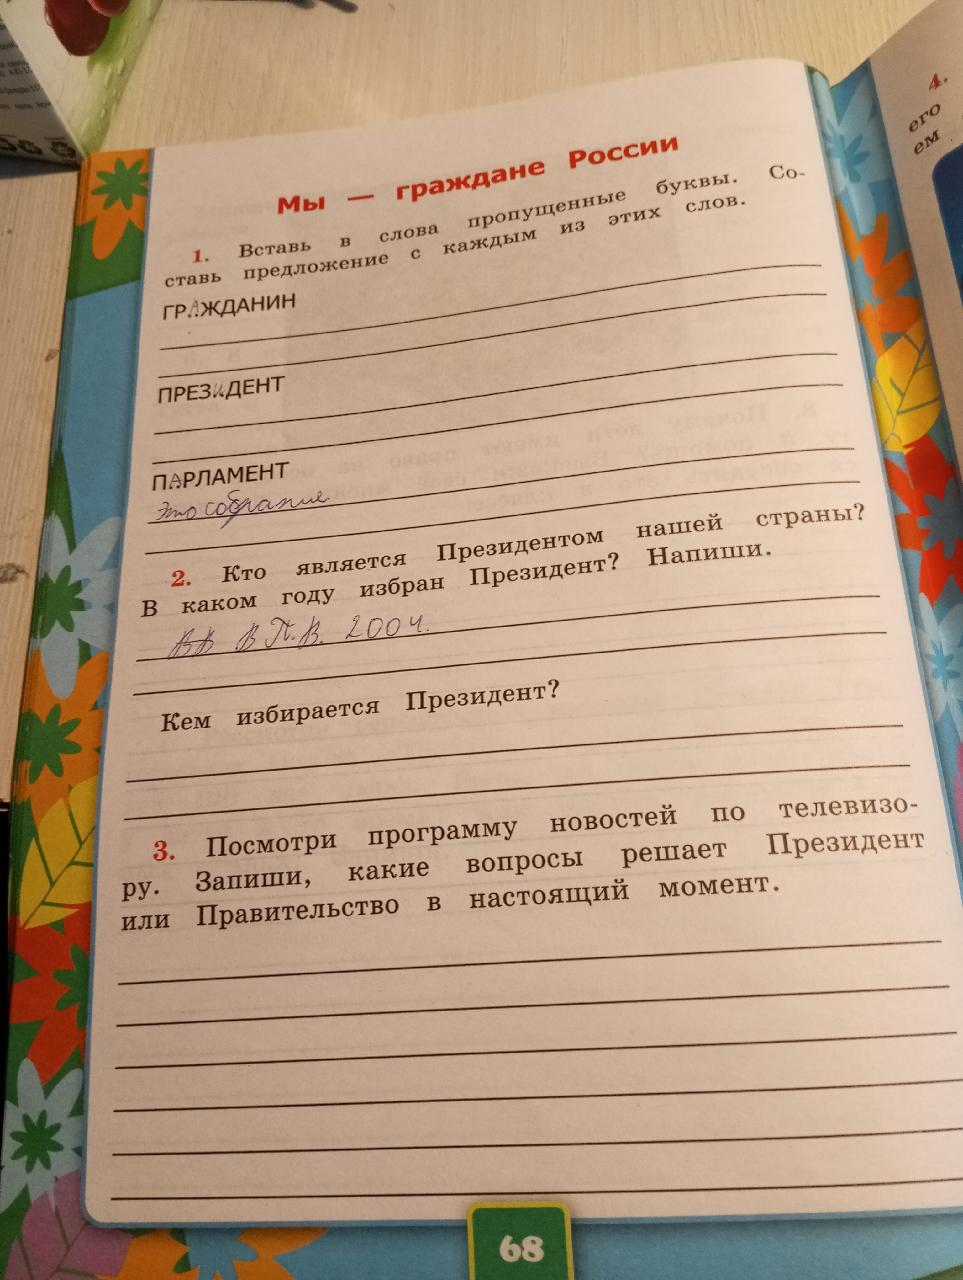 Мы — граждане России
1. Вставь в слова пропущенные буквы. Со-
ставь предложение с каждым из этих слов.
ГРАЖДАНИН
ПРЕЗИДЕНТ
ПАРЛАМЕНТ
Это собрание
2. Кто является Президентом нашей страны?
В каком году избран Президент? Напиши.
В П.В. 2004.
Кем избирается Президент?
3. Посмотри программу новостей по телевизо-
ру. Запиши, какие вопросы решает Президент
или Правительство в настоящий момент.
68
4.
его
ем